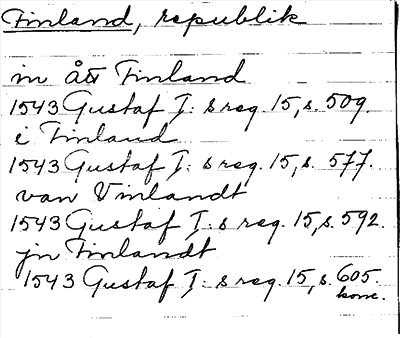 Finland, republik
in Ått Finland
1543 Gustaf I:s reg. 15, s. 509.
i Finland
1543 Gustaf I:s reg. 15, s. 577.
van Vinlandt
1543 Gustaf I:s reg. 15, s. 592.
jn Finlandt
1543 Gustaf I:s reg. 15, s. 605.
konc.